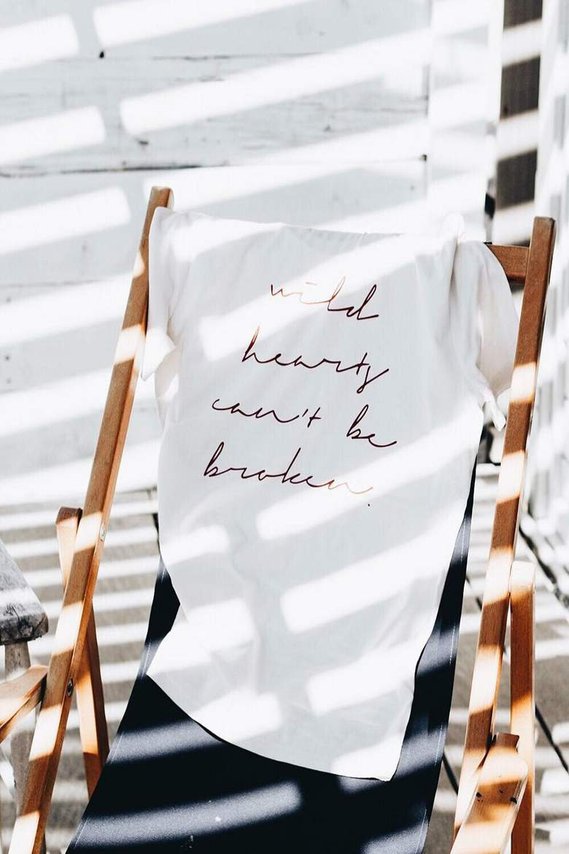 wild
hearts
can't be
broken.